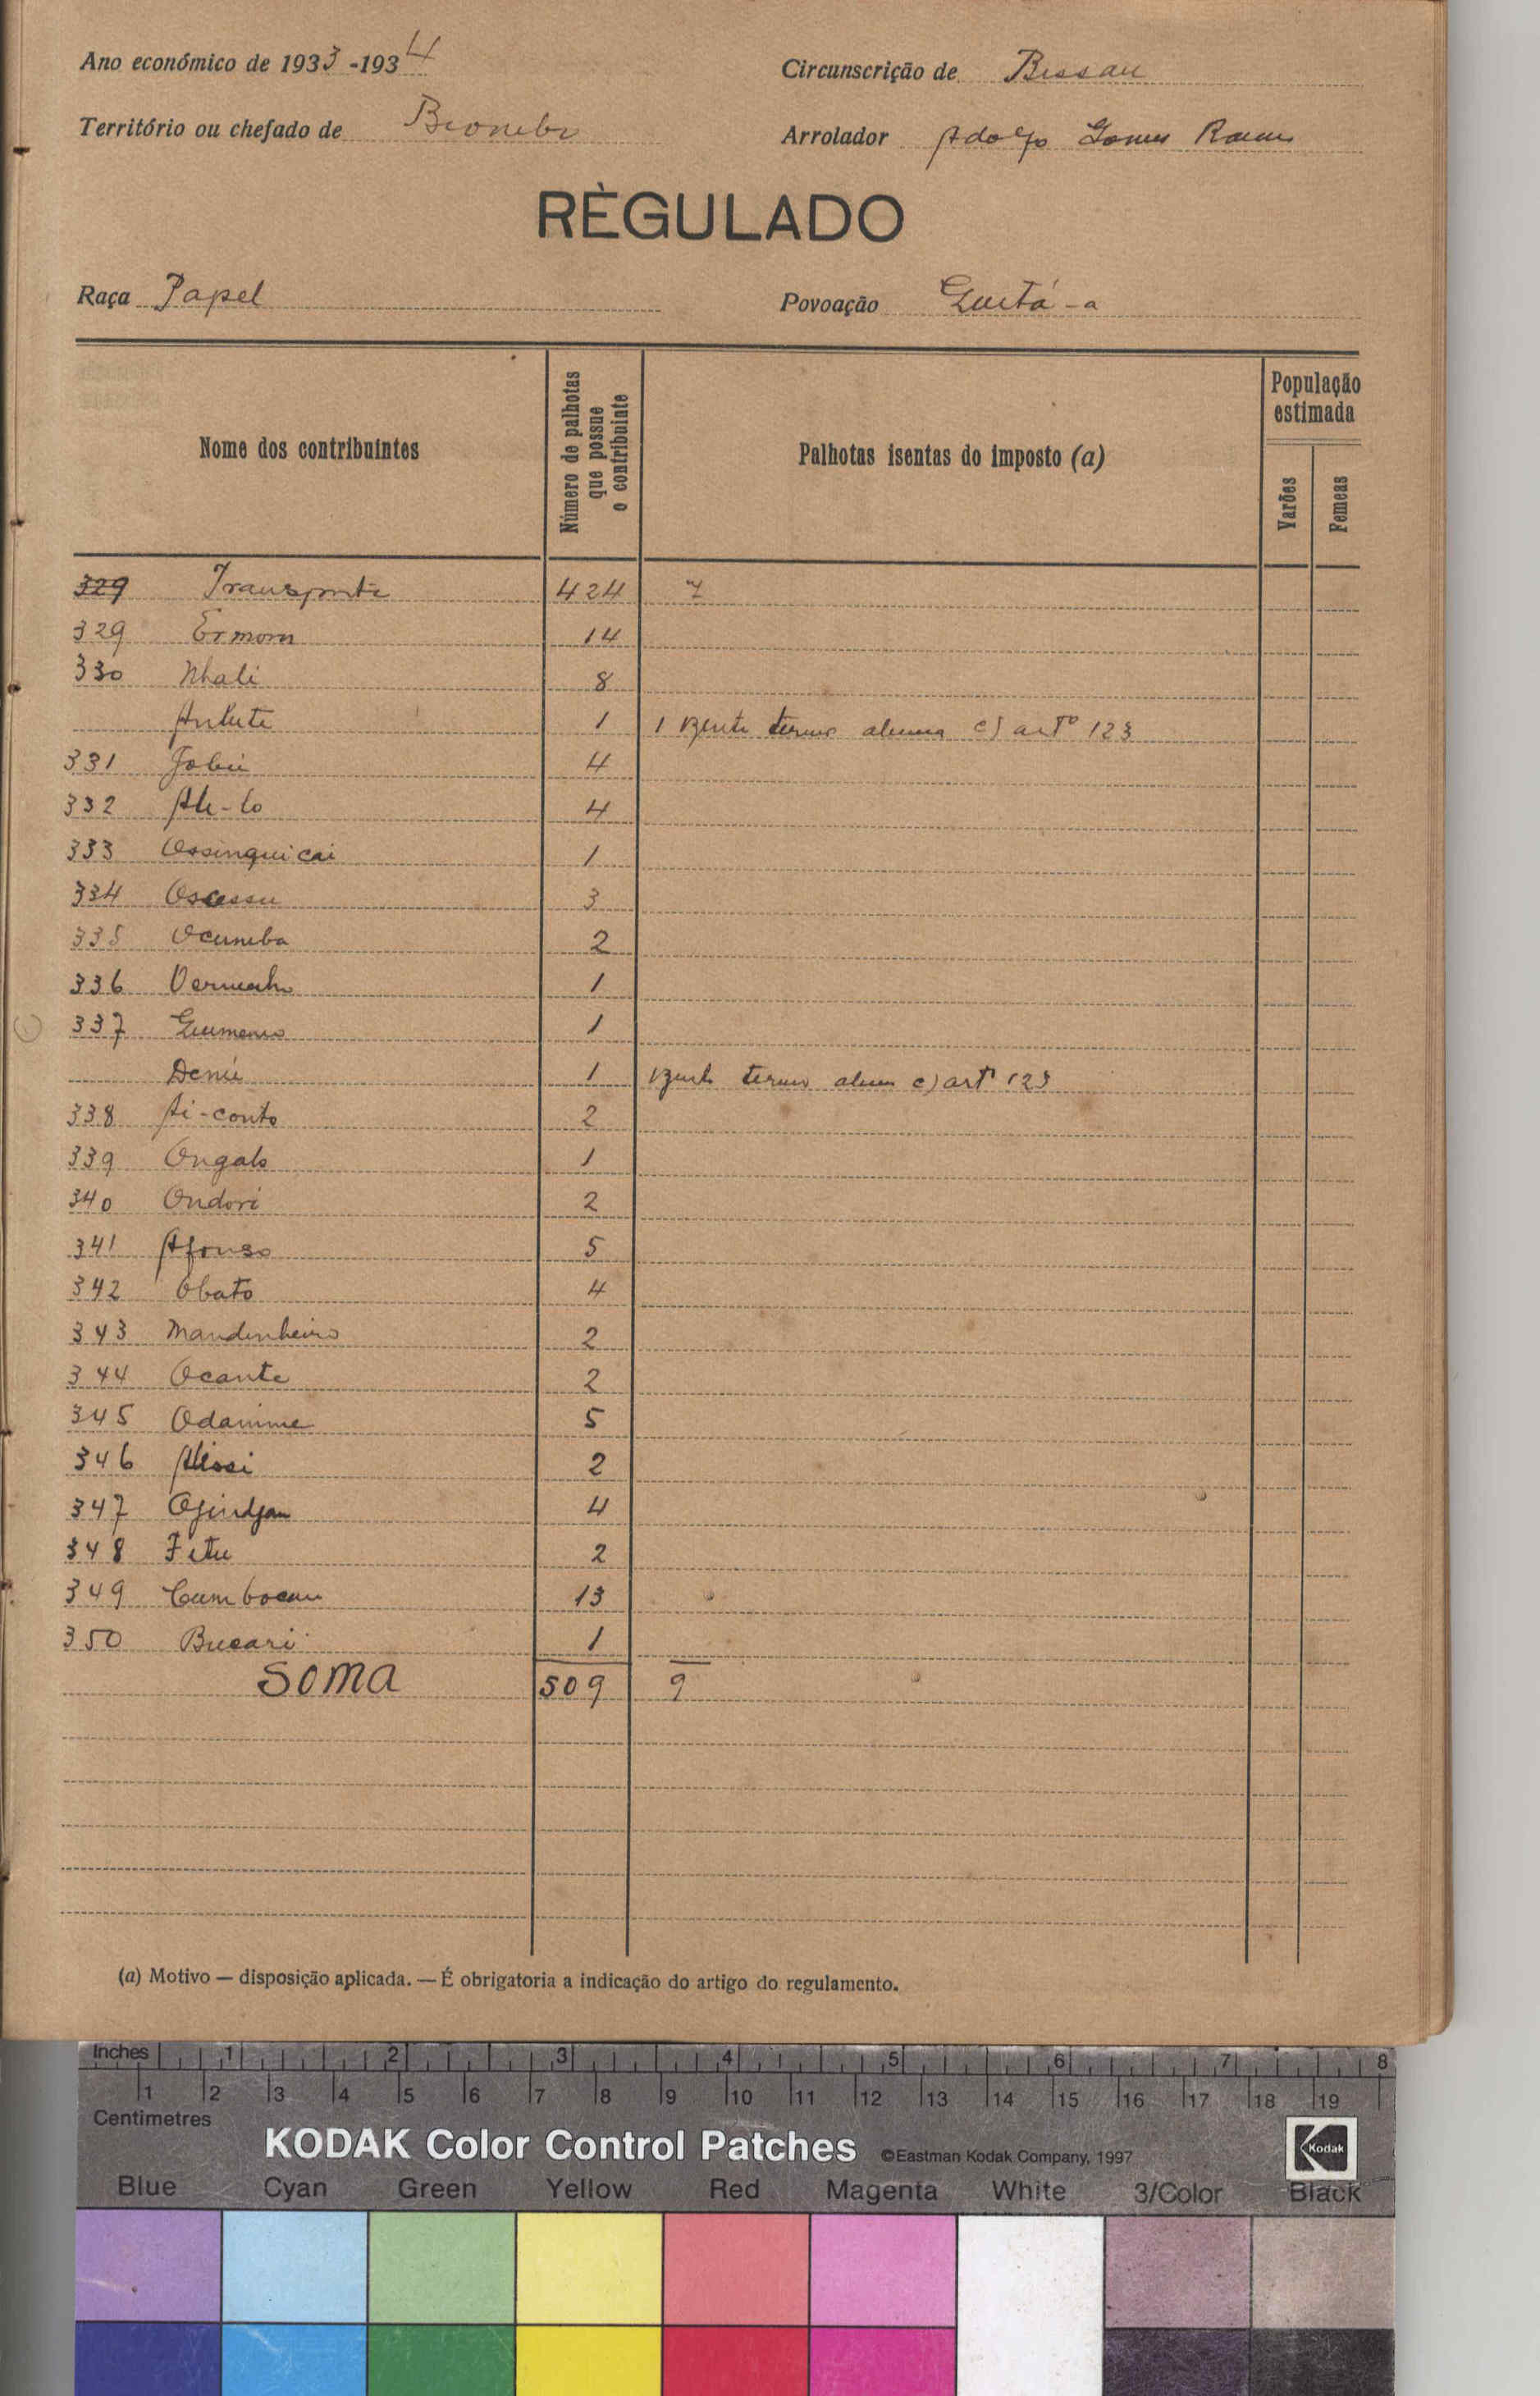 Ano económico de 1933-1934
Circunscrição de Bissau
Território ou chefado de Biombo
Arrolador Adolfo Gomes Ramos
RÈGULADO
Raça Papel
Povoação Quitá-a
Nome dos contribuintes
Número de palhotas que possue o contribuinte
Palhotas isentas do imposto (a)
População estimada
Varões
Femeas
329 Transporte 424 7
329 Ermom 14
330 Nhali 8
1 1 termo c) artº 123
331 4
332 4
333 Ossinquicai 1
334 3
335 Ocumba 2
336 1
337 1
1 termo c) artº 123
338 Ai-conto 2
339 Ongalo 1
340 Ondori 2
341 Afonso 5
342 Obato 4
343 Mandinheiro 2
344 Ocante 2
345 5
346 2
347 4
348 Fitu 2
349 13
350 Bucari 1
SOMA 509 9
(a) Motivo — disposição aplicada. — É obrigatoria a indicação do artigo do regulamento.
Inches 1 2 3 4 5 6 7 8
1 2 3 4 5 6 7 8 9 10 11 12 13 14 15 16 17 18 19
Centimetres
KODAK Color Control Patches ©Eastman Kodak Company, 1997
Kodak
Blue Cyan Green Yellow Red Magenta White 3/Color Black